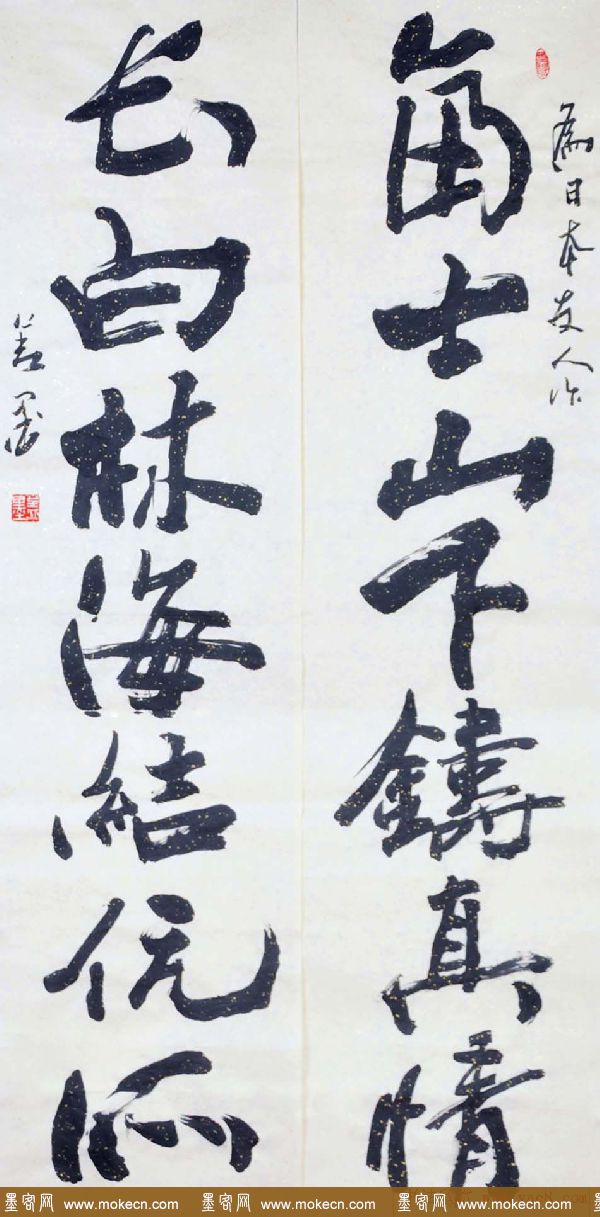 為日本友人作
富士山下鑄真情
长白林海結伉俪
墨客网 www.mokecn.com 墨客网 www.mokecn.com 墨客网 www.mokecn.com